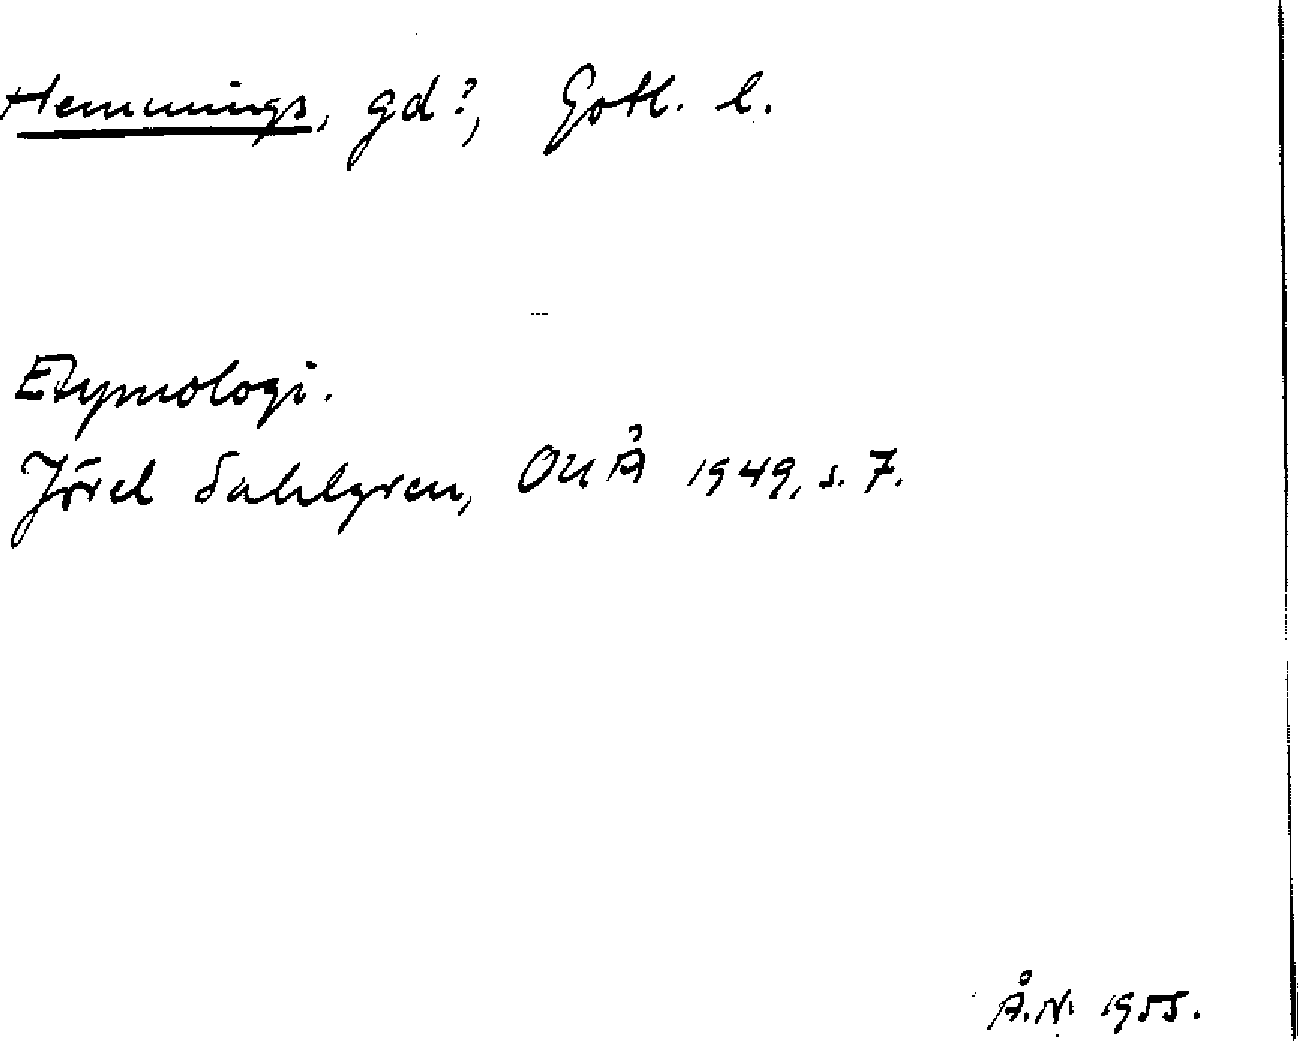 Hemmings, gd?, Gotl. l.
Etymologi.
Jöred Sahlgren, OUÅ 1949, s. 7.
Å.N. 1955.